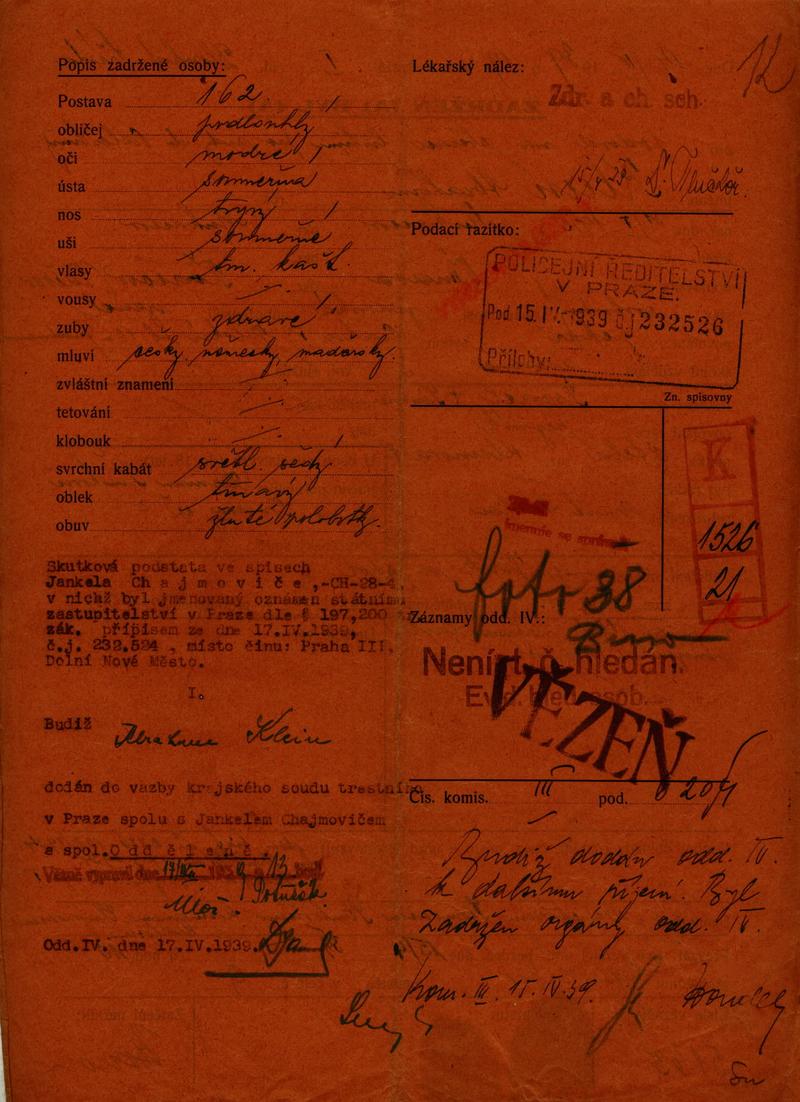 Popis zadržené osoby:
Postava 162
obličej podlouhlý
oči modré
ústa souměrná
nos
uši souměrné
vlasy tm. kašt.
vousy
zuby zdravé
mluví česky, německy, maďarsky.
zvláštní znamení
tetování
klobouk
svrchní kabát světl. šedý
oblek tmavý
obuv žluté polobotky.
Skutková podstata ve spisech
Jankela Chajmoviče,-CH-28-4,
v nichž byl jmenovaný oznámen státnímu
zastupitelství v Praze dle § 197,200
zák. přípisem ze dne 17.IV.1939,
č.j. 232.524 , místo činu: Praha III.
Dolní Nové Město.
I.
Budiž Abraham Klein
dodán do vazby krajského soudu trestního
v Praze spolu s Jankelem Chajmovičem
a spol. Odděleně.
Odd.IV. dne 17.IV.1939.
Lékařský nález:
12
Zdr. a ch. sch.
Podací razítko:
POLICEJNÍ ŘEDITELSTVÍ
V PRAZE.
Pod. 15.IV.1939 čj 232526
Přílohy:
Zn. spisovny
K
1526
21
foto 38
Záznamy odd. IV.:
Není t. č. hledán.
Evid. hled. osob.
VĚZEŇ
Čís. komis. III pod.
Budiž dodán odd. IV.
k dalšímu řízení. Byl
Zadržen orgány odd. IV.
Kom. III. 15.IV.39.